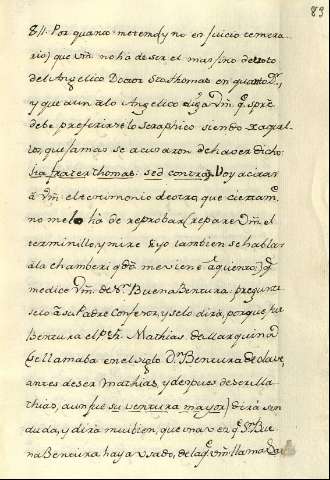 83
8/1. Por quanto me temo (y no es juicio temera-
rio) que Vm no ha de ser el mas fino devoto
del Angelico Doctor Sto Thomas en quanto Dr,
y que aun a lo Angelico diga Vm. qe spre
debe preferirse lo Seraphico siendo
to, que jamas se acusaron de haver dicho:
sia frater Thomas: sed contra. Voy a citar
a Vm. el testimonio de otro, que ciertamte
no me lo ha de reprobar (repare Vm. el
terminillo, y mire qe yo tambien se hablar
a la chamberi qdo me viene a quento) qe
me dice Vm. de Sn Buena Bentura? pregunte
selo a su Padre Confesor, y selo dirá, porque fue
Bentura el P. Fr. Mathias de Marquina
(se llamaba en el siglo Dn Bentura de Olave,
antes de ser Mathias, y despues de ser Ma
thias, aun fue su ventura mayor) dirá sin
duda, y dirá mui bien, que una vez qe Sn Bue
na Bentura haya usado, de la qe Vm. llama